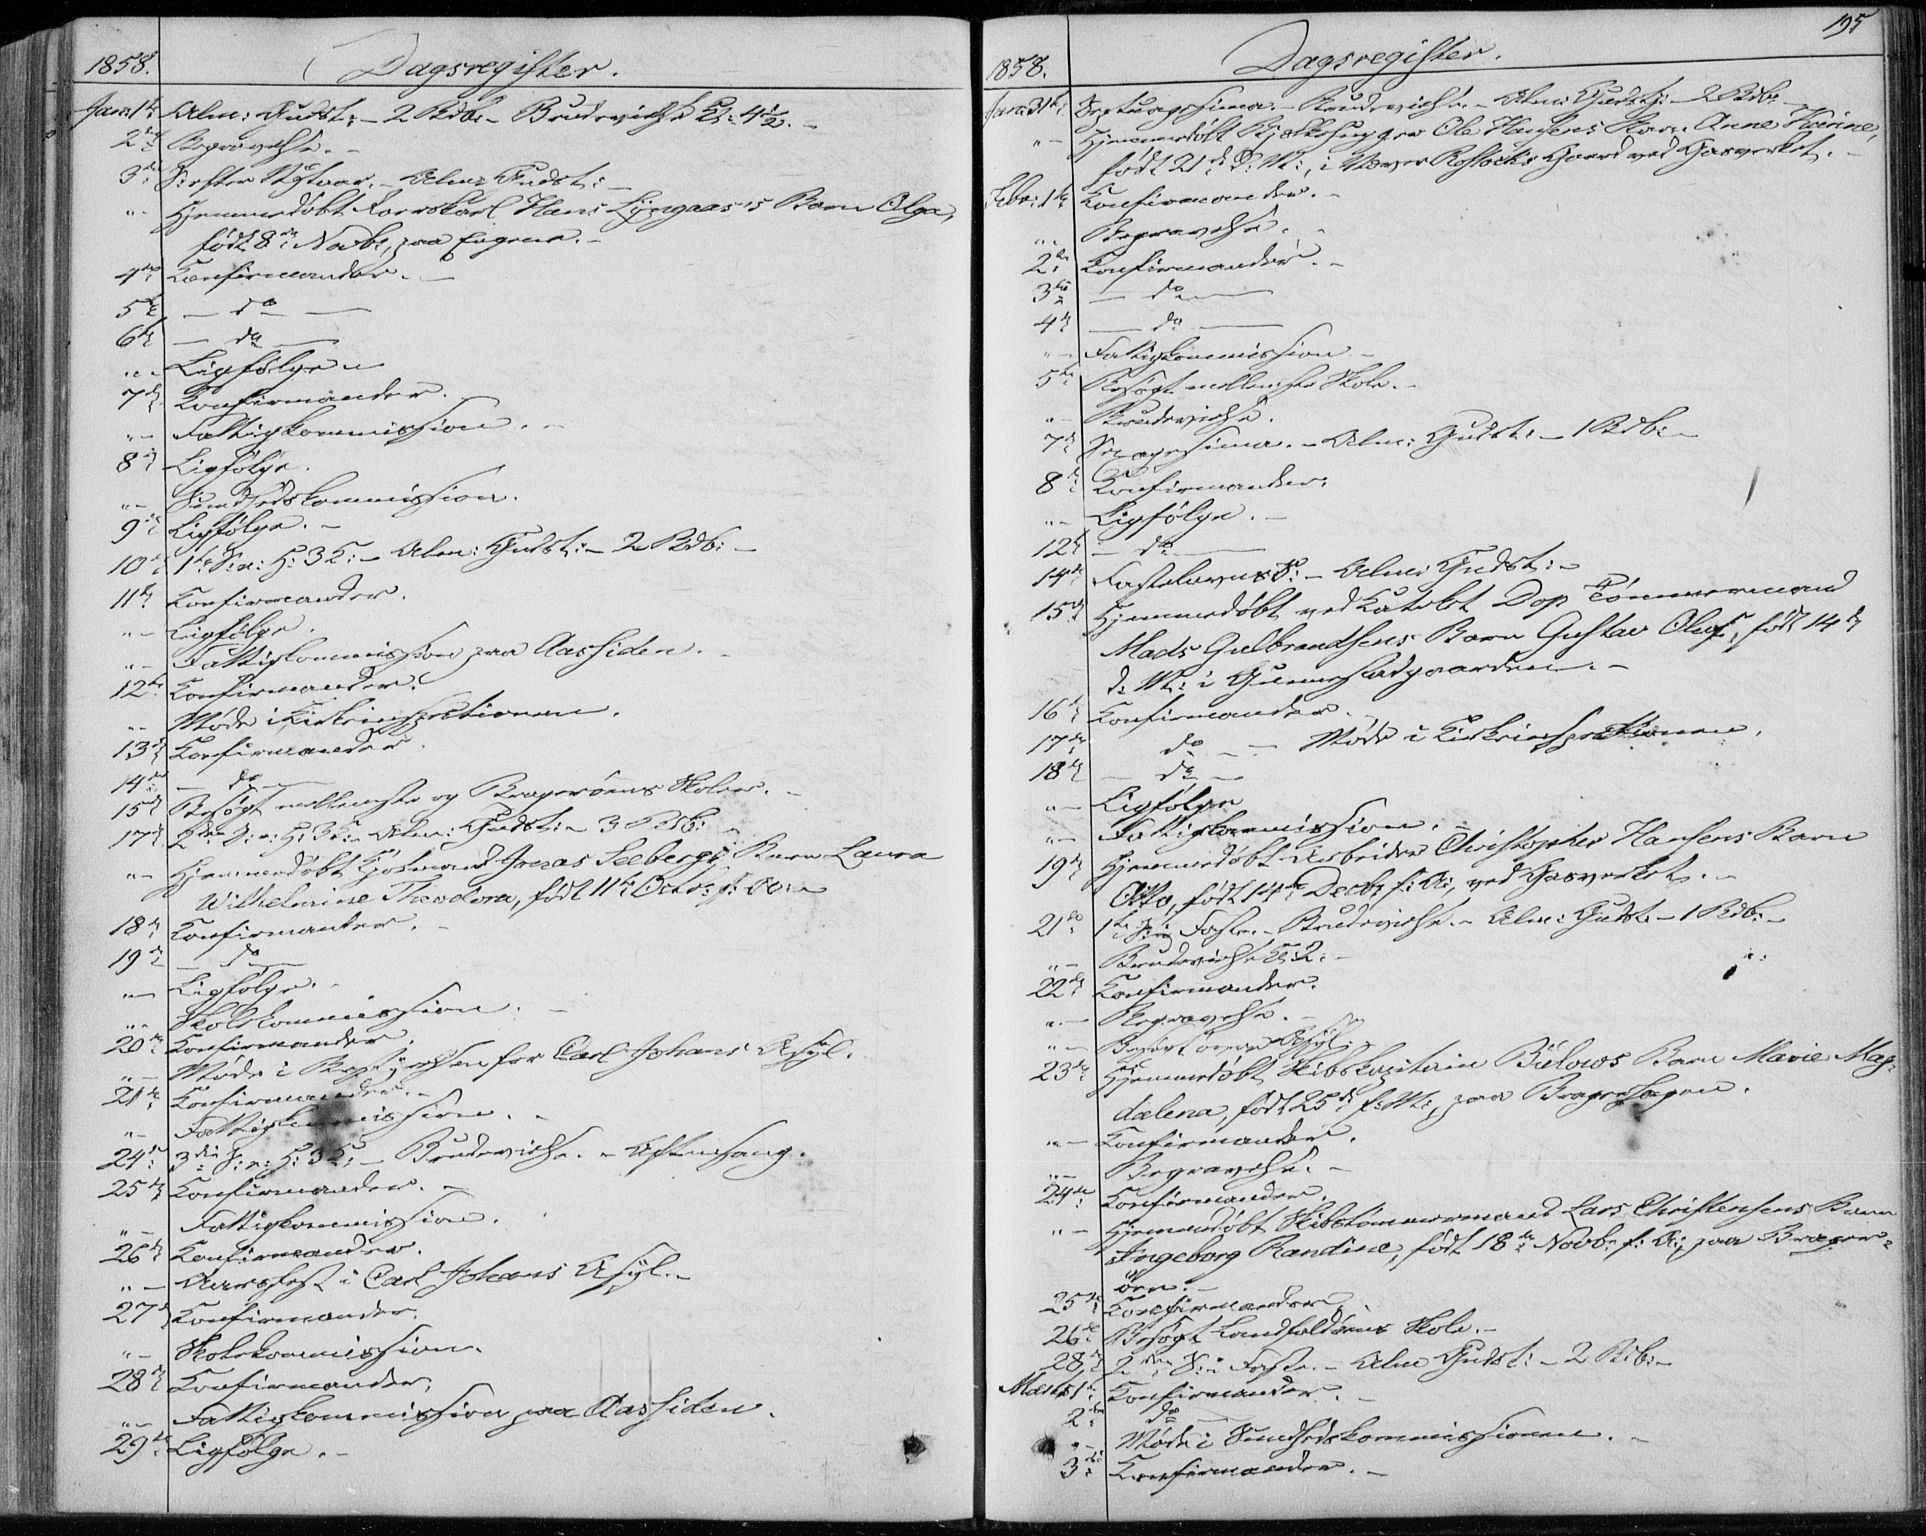 1858.
Dagsregister.
Janr 1ste Alm: Gudst: – 2 Bdb. – Brudevielse Kl. 4½. –
2den Begravelse. –
3die Alm: Gudst: –
" – Hjemmedøbt Hans Lyngaas's Barn Olga,
født 8de Novbr, paa Engene. –
4de Konfirmander. –
5te – do –
6te – do –
" – Ligfølge –
7de Konfirmander.
" – Fattigkommission. –
8de Ligfølge.
" – Sundhedskommission.
9de Ligfølge. –
10de 1ste S: e: H: 3 K: – Alm: Gudst: – 2 Bdb: –
11te Konfirmander.
" – Ligfølge.
" – Fattigkommission paa Aassiden. –
12te Konfirmander.
" – Møde i Kirkeinspectionen.
13de Konfirmander.
14de – do –
15de Besøgt mellemste og Bragerøens Skoler. –
17de 2den S: e: H: 3 K: – Alm: Gudst: – 3 Bdb: –
" – Hjemmedøbt Jonas Seebergs Barn Laura
Wilhelmine Theodora, født 11te Octbr f: A: –
18de Konfirmander. –
19de – do –
" – Ligfølge. –
" – Skolekommission. –
20de Konfirmander.
" – Møde i Bestyrelsen for Carl Johans Asyl.
21de Konfirmander. –
" – Fattigkommission. –
24de 3die S: e: H: 3 K: – Brudevielse. – Aftensang.
25de Konfirmander. –
" – Fattigkommission.
26de Konfirmander.
" – Aarsfest i Carl Johans Asyl. –
27de Konfirmander.
" – Skolekommission.
28de Konfirmander.
" – Fattigkommission paa Aassiden.
29de Ligfølge. –
195
1858.
Dagsregister.
Janr 31te Septuagesima. – Brudevielse. – Alm: Gudst: – 2 Bdb: –
" – Hjemmedøbt Ole Hansens Barn Anne Karine,
født 21de d: M:, i Rostocks Gaard ved Gasverket. –
Febr: 1ste Konfirmander. –
" – Begravelse. –
2den Konfirmander. –
3die – do –
4de – do –
" – Fattigkommission –
5te Besøgt mellemste Skole. –
" – Brudevielse.
7de Sexagesima. – Alm: Gudst: – 1 Bdb: –
8de Konfirmander.
" – Ligfølge. –
12te – do –
14de Fastelavns S: – Alm: Gudst: –
15de Hjemmedøbt ved Katolsk Daab Tømmermand
Mads Gulbrandsens Barn Gustav Oluf, født 14de
d: M: i Gunnestadgaarden. –
16de Konfirmander.
17de do – – Møde i Kirkeinspektionen.
18de – do –
" – Ligfølge
" – Fattigkommission. –
19de Hjemmedøbt Arbeider Christopher Hansens Barn
Otto, født 14de Decbr f: A:, ved Gasverket. –
21de 1ste S: i Faste. – Brudevielse. – Alm: Gudst: – 1 Bdb: –
" – Brudevielse Kl. 2. –
22de Konfirmander.
" – Begravelse. –
" – Asyl. –
23de Hjemmedøbt Skibskapitain Bülows Barn Marie Mag-
dalena, født 25de f: M:, paa Bragernes.
" – Konfirmander.
" – Begravelse. –
24de Konfirmander.
" – Hjemmedøbt Skibstømmermand Lars Christensens Barn
Ingeborg Randine, født 18de Novbr f: A:, paa Brager-
øen. –
25de Konfirmander.
26de Besøgt Landfaldøens Skole. –
28de 2den S: i Faste. – Alm Gudst: – 2 Bdb: –
Marts 1ste Konfirmander. –
2den do –
" – Møde i Sundhedskommissionen. –
3die Konfirmander. –